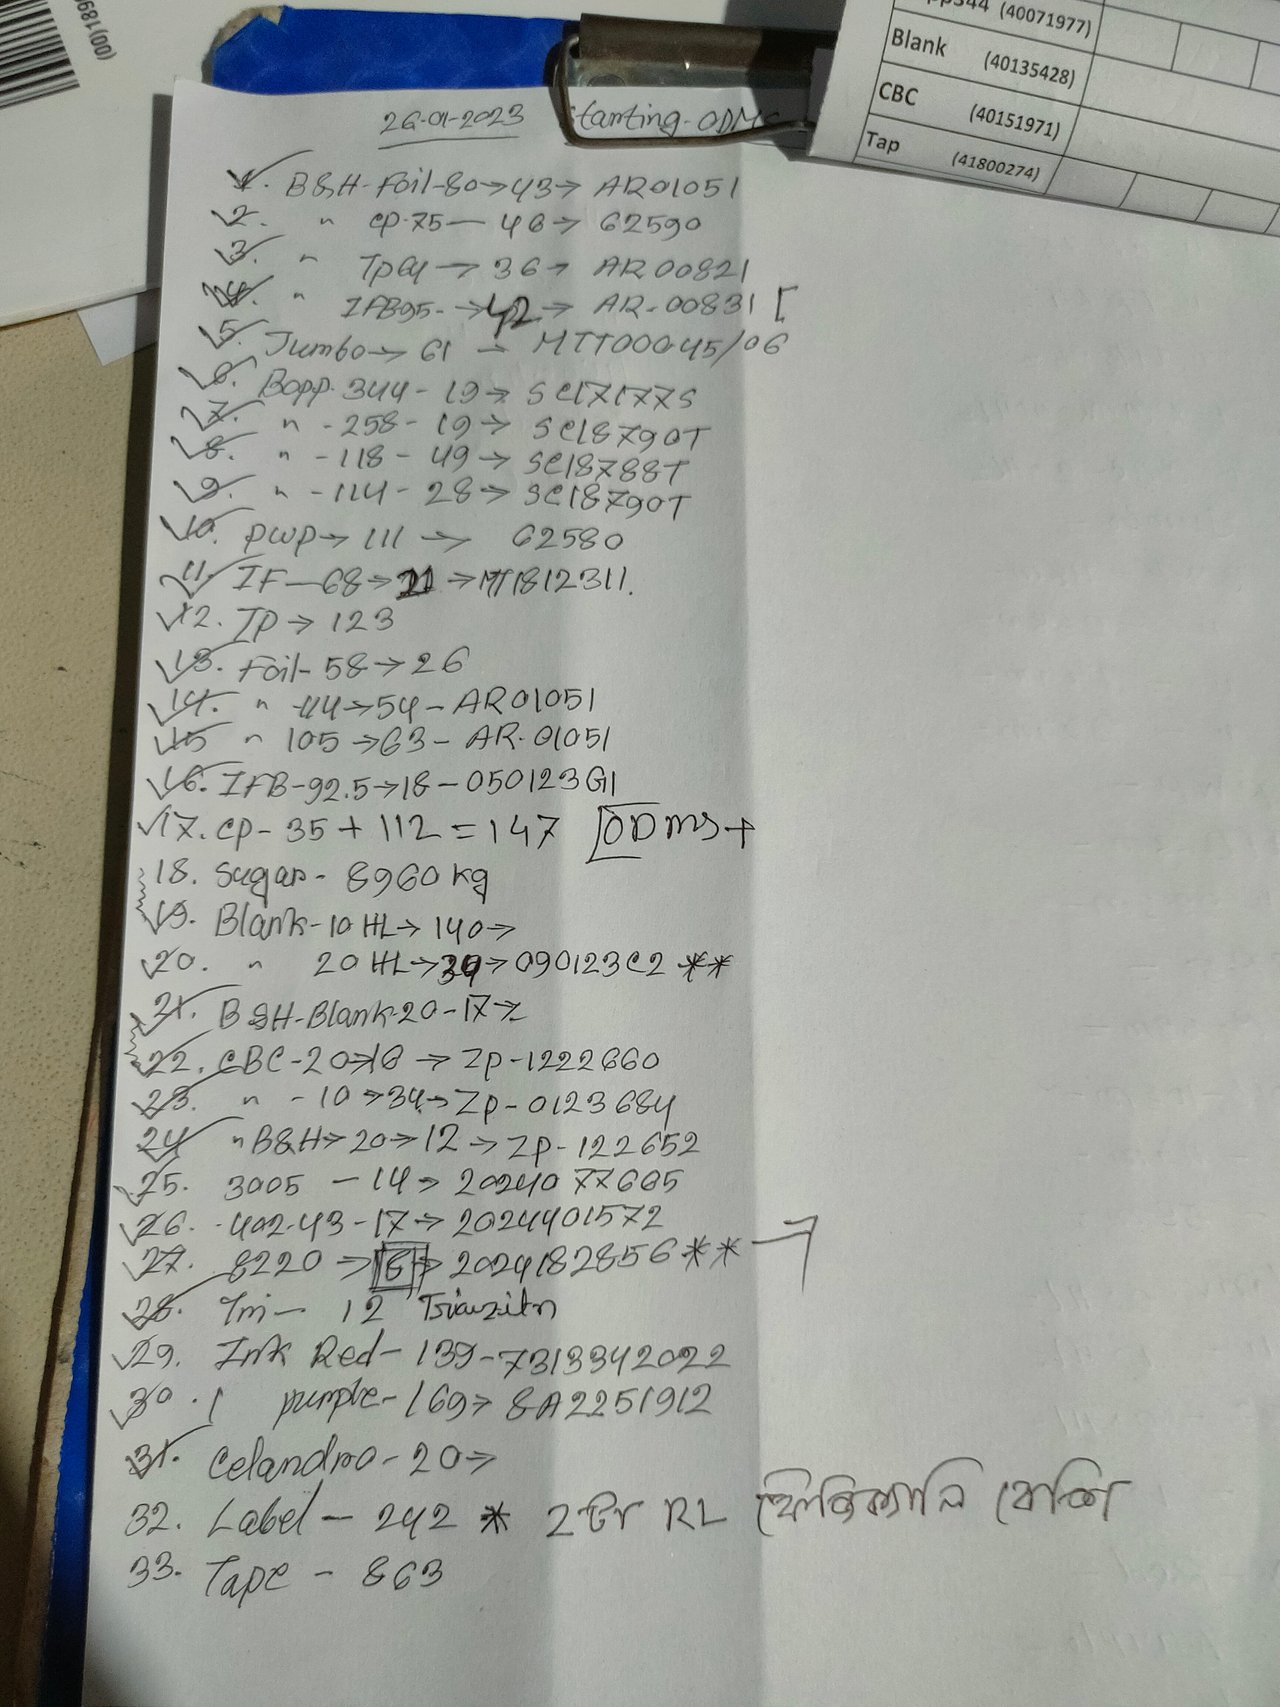 (00)189
pp344 (40071977)
Blank (40135428)
CBC (40151971)
Tap (41800274)
26-01-2023 Starting-ODMS
1. B&H-Foil-80→43→ AR01051
2. " CP-75— 46→ 62590
3. " Tp64→ 36→ AR00821
4. " IFB95-→42→ AR-00831 [
5. Jumbo→ 61 → MTT00045/06
6. Bopp-344-19→ SC17177S
7. " -258-19→ SC18790T
8. " -118-49→ SC18788T
9. " -114-28→ SC18790T
10. pwp→ 111 → 62580
11. IF—68→21→MT1812311.
12. Ip→ 123
13. Foil-58→26
14. " 44→54-AR01051
15 " 105→63-AR-01051
16. IFB-92.5→18-050123G1
17. CP-35+112=147 ODMS+
18. Sugar-8960kg
19. Blank-10HL→140→
20. " 20HL→39→090123C2 **
21. B&H-Blank-20-17→
22. CBC-20→16→Zp-1222660
23. " -10→34→Zp-0123684
24 "B&H→20→12→Zp-122652
25. 3005 -14→ 2024077665
26. 402-43-17→2024401572
27. 8220→18→2024182856**
28. Tri- 12
29. Ink Red-139-7313342022
30. purple-169→8A2251912
31. Celandro-20→
32. Label-242 * 2টা RL ফিজিক্যালি বেশি
33. Tape-863